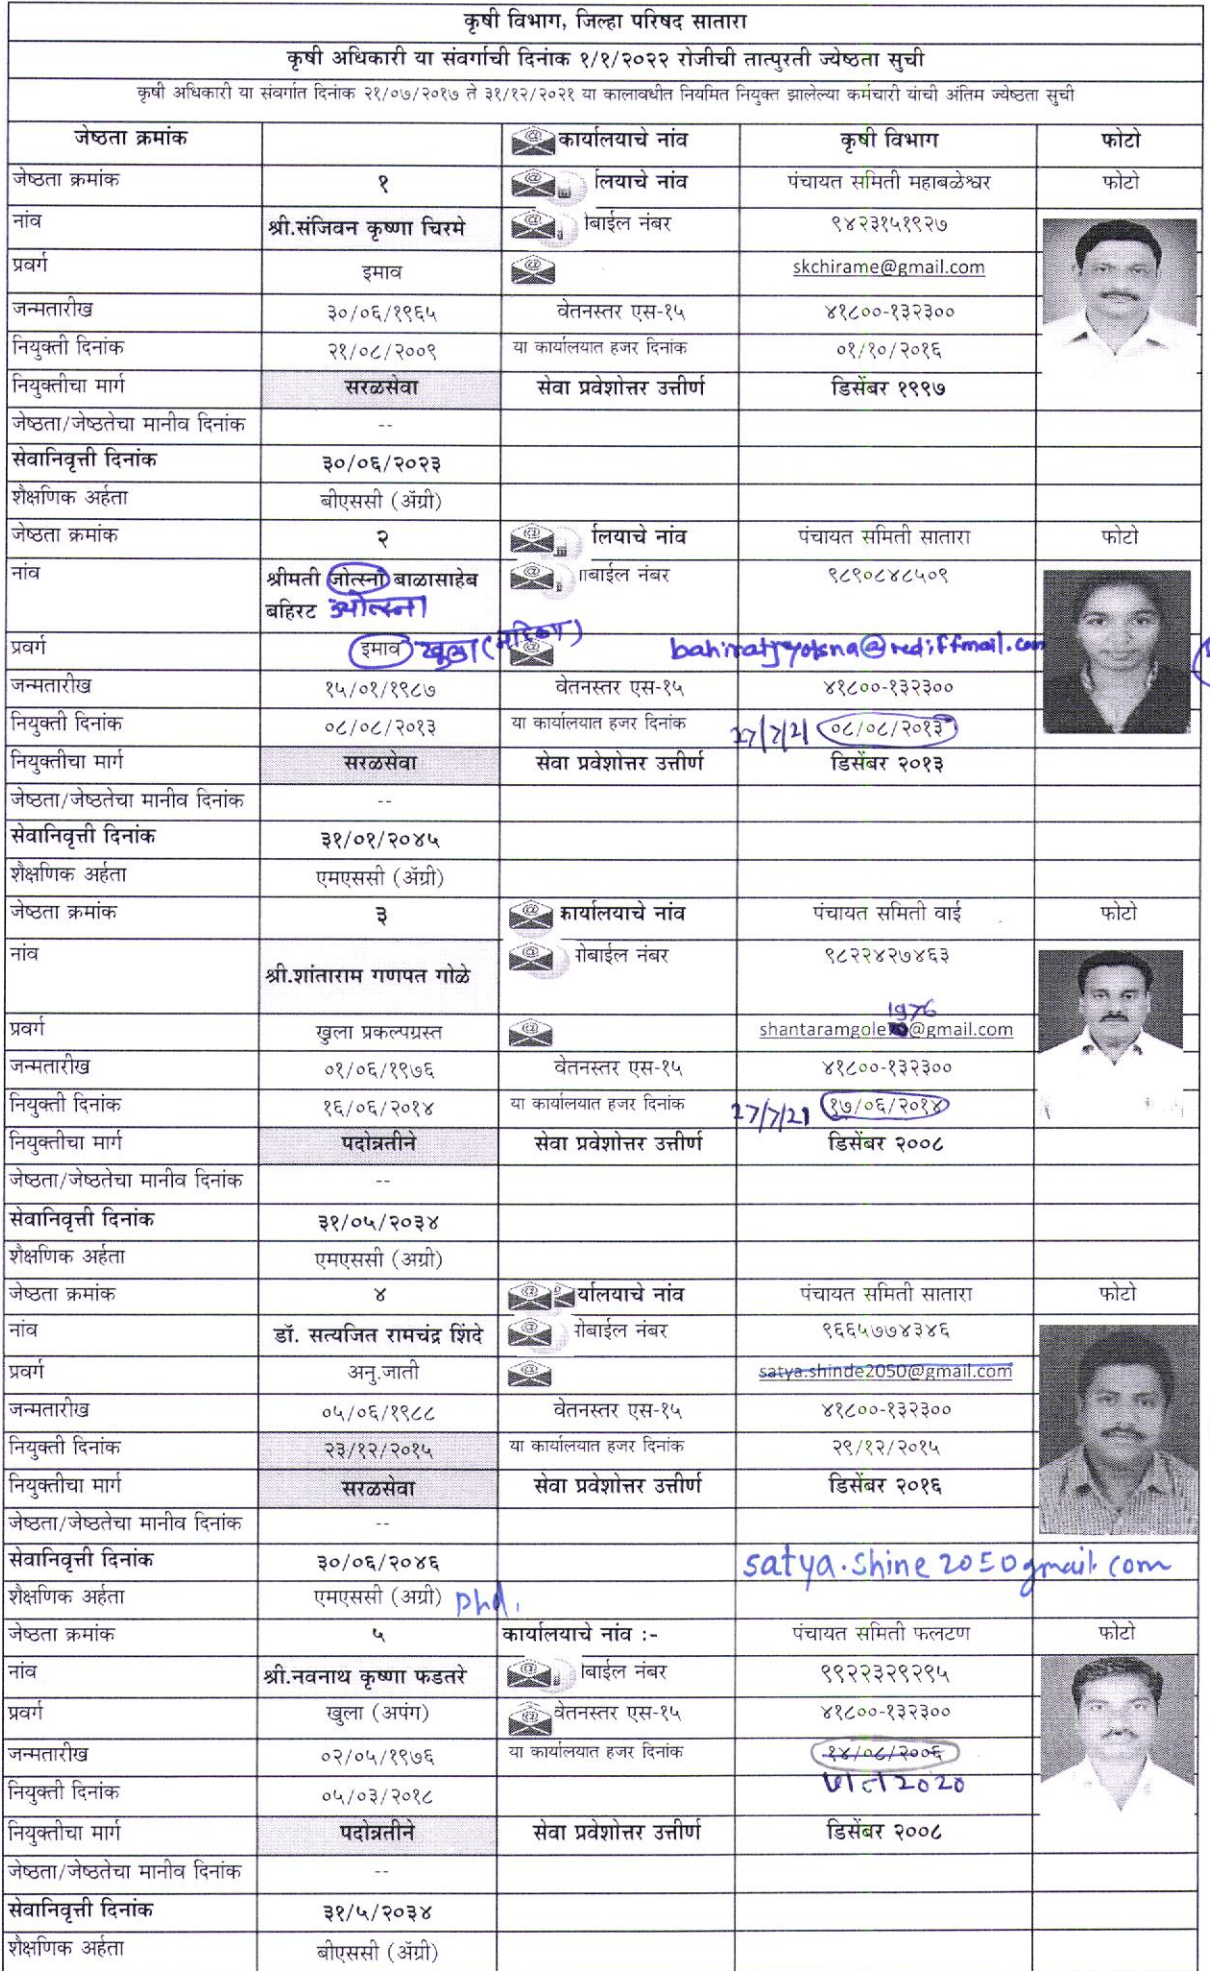 कृषी विभाग, जिल्हा परिषद सातारा
कृषी अधिकारी या संवर्गाची दिनांक १/१/२०२२ रोजीची तात्पुरती ज्येष्ठता सुची
कृषी अधिकारी या संवर्गात दिनांक २१/०७/२०१७ ते ३१/१२/२०२१ या कालावधीत नियमित नियुक्त झालेल्या कर्मचारी यांची अंतिम ज्येष्ठता सुची
जेष्ठता क्रमांक कार्यालयाचे नांव कृषी विभाग फोटो
जेष्ठता क्रमांक १ लयाचे नांव पंचायत समिती महाबळेश्वर फोटो
नांव श्री.संजिवन कृष्णा चिरमे बाईल नंबर ९४२३१५१९२७
प्रवर्ग इमाव skchirame@gmail.com
जन्मतारीख ३०/०६/१९६५ वेतनस्तर एस-१५ ४१८००-१३२३००
नियुक्ती दिनांक २१/०८/२००९ या कार्यालयात हजर दिनांक ०१/१०/२०१६
नियुक्तीचा मार्ग सरळसेवा सेवा प्रवेशोत्तर उत्तीर्ण डिसेंबर १९९७
जेष्ठता/जेष्ठतेचा मानीव दिनांक --
सेवानिवृत्ती दिनांक ३०/०६/२०२३
शैक्षणिक अर्हता बीएससी (ॲग्री)
जेष्ठता क्रमांक २ लयाचे नांव पंचायत समिती सातारा फोटो
नांव श्रीमती जोत्स्ना बाळासाहेब बाईल नंबर ९८९०८४८५०९
बहिरट ज्योत्स्ना
प्रवर्ग इमाव खुला (महिला) bahiratjyotsna@rediffmail.com
जन्मतारीख १५/०१/१९८७ वेतनस्तर एस-१५ ४१८००-१३२३००
नियुक्ती दिनांक ०८/०८/२०१३ या कार्यालयात हजर दिनांक 27/7/21 ०८/०८/२०१३
नियुक्तीचा मार्ग सरळसेवा सेवा प्रवेशोत्तर उत्तीर्ण डिसेंबर २०१३
जेष्ठता/जेष्ठतेचा मानीव दिनांक --
सेवानिवृत्ती दिनांक ३१/०१/२०४५
शैक्षणिक अर्हता एमएससी (ॲग्री)
जेष्ठता क्रमांक ३ कार्यालयाचे नांव पंचायत समिती वाई फोटो
नांव श्री.शांताराम गणपत गोळे बाईल नंबर ९८२२४२७४६३
1976
प्रवर्ग खुला प्रकल्पग्रस्त shantaramgole@gmail.com
जन्मतारीख ०१/०६/१९७६ वेतनस्तर एस-१५ ४१८००-१३२३००
नियुक्ती दिनांक १६/०६/२०१४ या कार्यालयात हजर दिनांक 27/7/21 १७/०६/२०१४
नियुक्तीचा मार्ग पदोन्नतीने सेवा प्रवेशोत्तर उत्तीर्ण डिसेंबर २००८
जेष्ठता/जेष्ठतेचा मानीव दिनांक --
सेवानिवृत्ती दिनांक ३१/०५/२०३४
शैक्षणिक अर्हता एमएससी (अग्री)
जेष्ठता क्रमांक ४ र्यालयाचे नांव पंचायत समिती सातारा फोटो
नांव डॉ. सत्यजित रामचंद्र शिंदे बाईल नंबर ९६६५७७४३४६
प्रवर्ग अनु.जाती satya.shinde2050@gmail.com
जन्मतारीख ०५/०६/१९८८ वेतनस्तर एस-१५ ४१८००-१३२३००
नियुक्ती दिनांक २३/१२/२०१५ या कार्यालयात हजर दिनांक २९/१२/२०१५
नियुक्तीचा मार्ग सरळसेवा सेवा प्रवेशोत्तर उत्तीर्ण डिसेंबर २०१६
जेष्ठता/जेष्ठतेचा मानीव दिनांक --
सेवानिवृत्ती दिनांक ३०/०६/२०४६ satya.shine2050gmail.com
शैक्षणिक अर्हता एमएससी (अग्री) phd.
जेष्ठता क्रमांक ५ कार्यालयाचे नांव :- पंचायत समिती फलटण फोटो
नांव श्री.नवनाथ कृष्णा फडतरे बाईल नंबर ९९२२३२९२९५
प्रवर्ग खुला (अपंग) वेतनस्तर एस-१५ ४१८००-१३२३००
जन्मतारीख ०२/०५/१९७६ या कार्यालयात हजर दिनांक १४/०८/२००६
नियुक्ती दिनांक ०५/०३/२०१८ 2020
नियुक्तीचा मार्ग पदोन्नतीने सेवा प्रवेशोत्तर उत्तीर्ण डिसेंबर २००८
जेष्ठता/जेष्ठतेचा मानीव दिनांक --
सेवानिवृत्ती दिनांक ३१/५/२०३४
शैक्षणिक अर्हता बीएससी (ॲग्री)